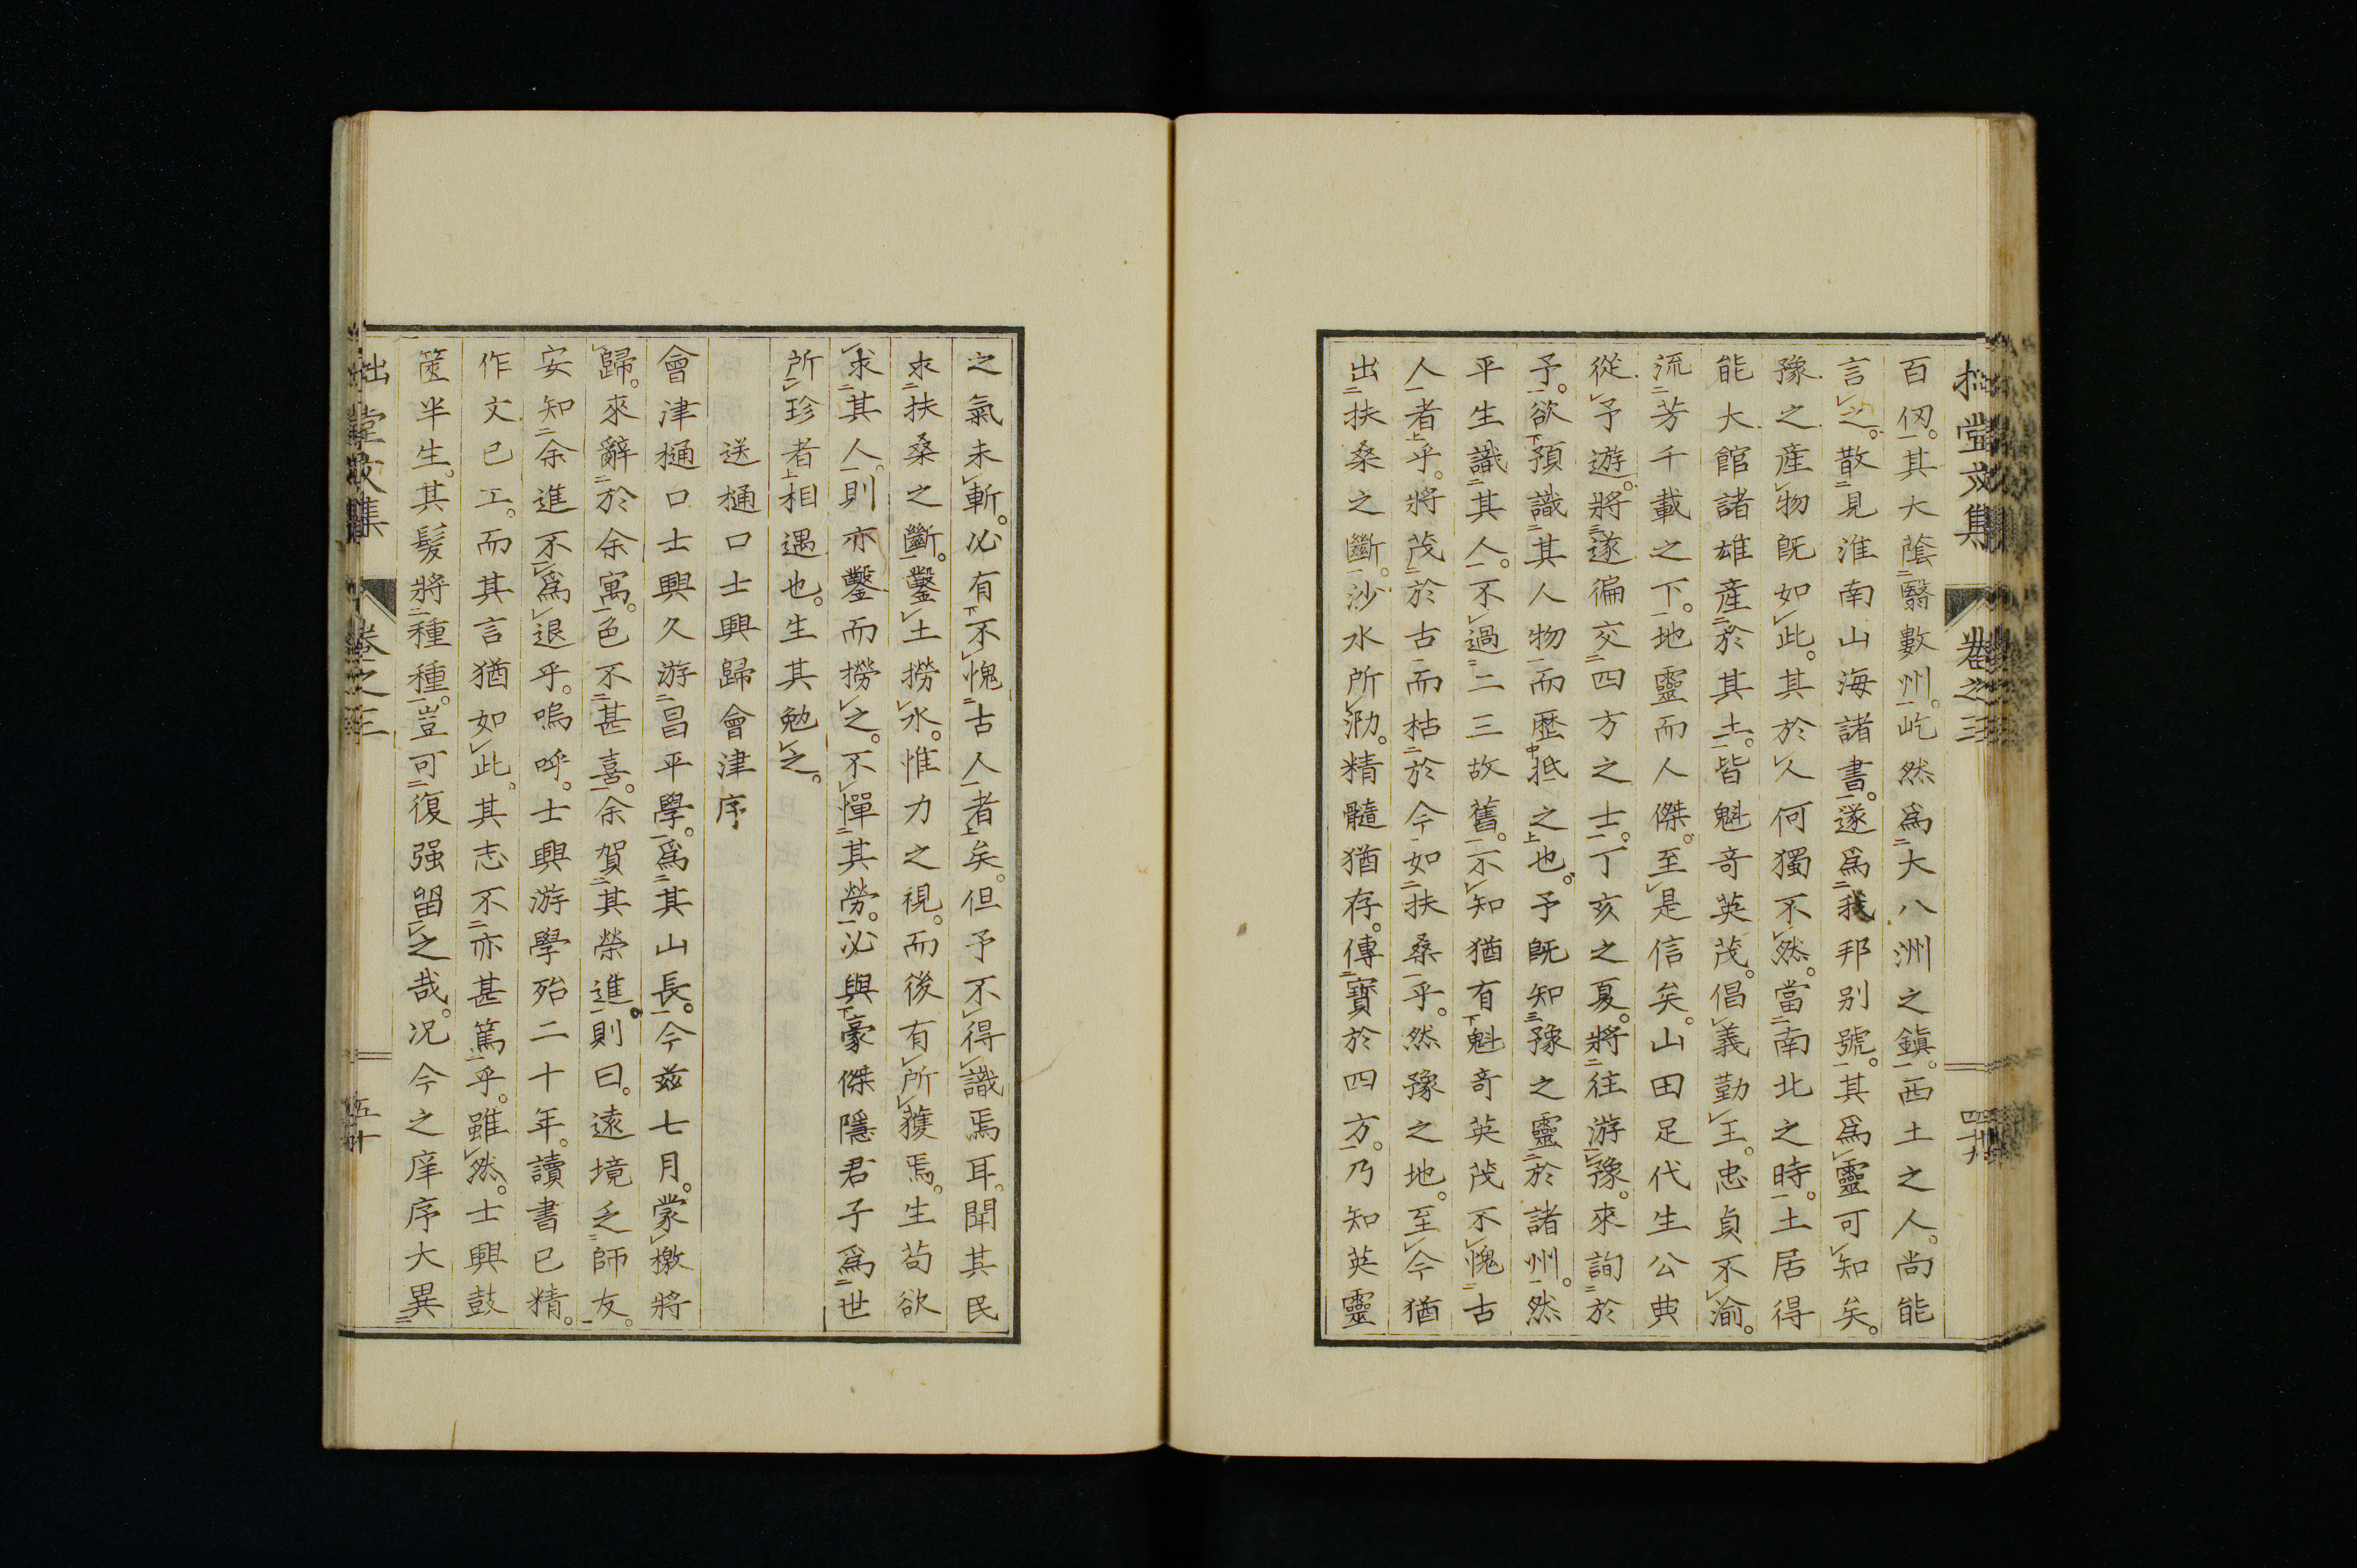 拙堂文集 卷之三 四十九
百仞。其大蔭翳數州。屹然爲大八洲之鎭。西土之人。尚能
言之。散見淮南山海諸書。遂爲我邦别號。其爲靈可知矣。
豫之産物既如此。其於人何獨不然。當南北之時。土居得
能大館諸雄産於其土。皆魁奇英茂。倡義勤王。忠貞不渝。
流芳千載之下。地靈而人傑。至是信矣。山田足代生公典
從予遊。將遂徧交四方之士。丁亥之夏。將往游豫。來詢於
予。欲預識其人物而歷抵之也。予既知豫之靈於諸州。然
平生識其人。不過二三故舊。不知猶有魁奇英茂不愧古
人者乎。將茂於古而枯於今如扶桑乎。然豫之地。至今猶
出扶桑之斷。沙水所泐。精髓猶存。傳寶於四方。乃知英靈
之氣未斬。必有不愧古人者矣。但予不得識焉耳。聞其民
求扶桑之斷。鑿土撈水。惟力之視。而後有所獲焉。生苟欲
求其人。則亦鑿而撈之。不憚其勞。必與豪傑隱君子爲世
所珍者相遇也。生其勉之。
送樋口士興歸會津序
會津樋口士興久游昌平學。爲其山長。今茲七月。蒙檄將
歸。來辭於余寓。色不甚喜。余賀其榮進。則曰。遠境乏師友。
安知余進不爲退乎。嗚呼。士興游學殆二十年。讀書已精。
作文已工。而其言猶如此。其志不亦甚篤乎。雖然。士興鼓
篋半生。其髮將種種。豈可復强留之哉。况今之庠序大異
拙堂文集 卷之三 五十